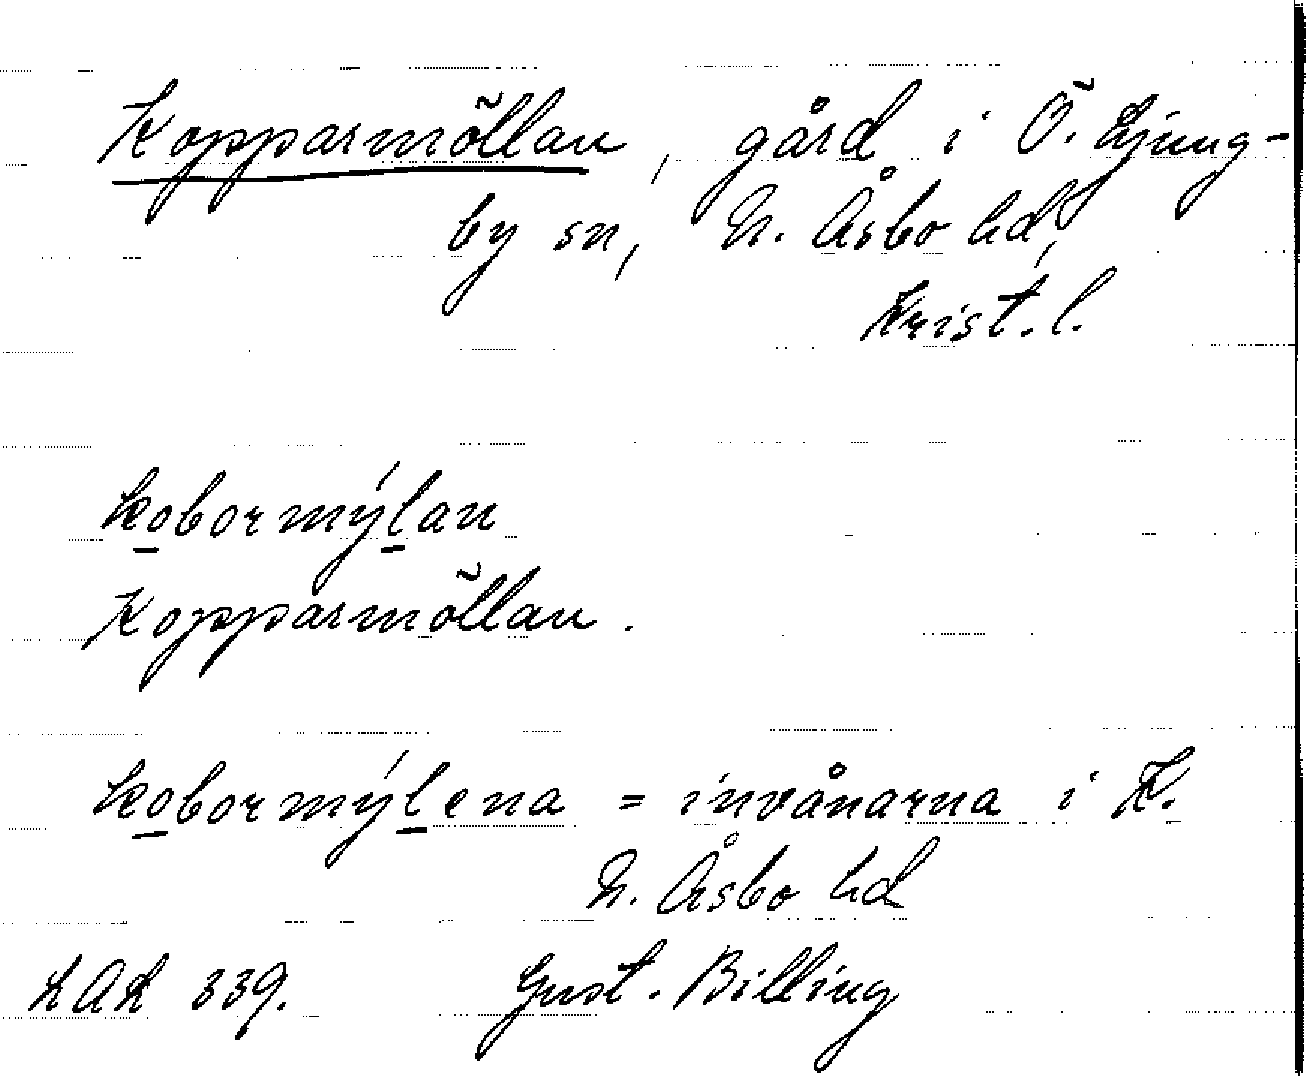 Kopparmöllan, gård i Ö. Ljung-
by sn, N. Åsbo hd,
Krist. l.
kobormýlan
Kopparmöllan.
kobormýlena = invånarna i K.
N. Åsbo hd
LAL 339. Gust. Billing